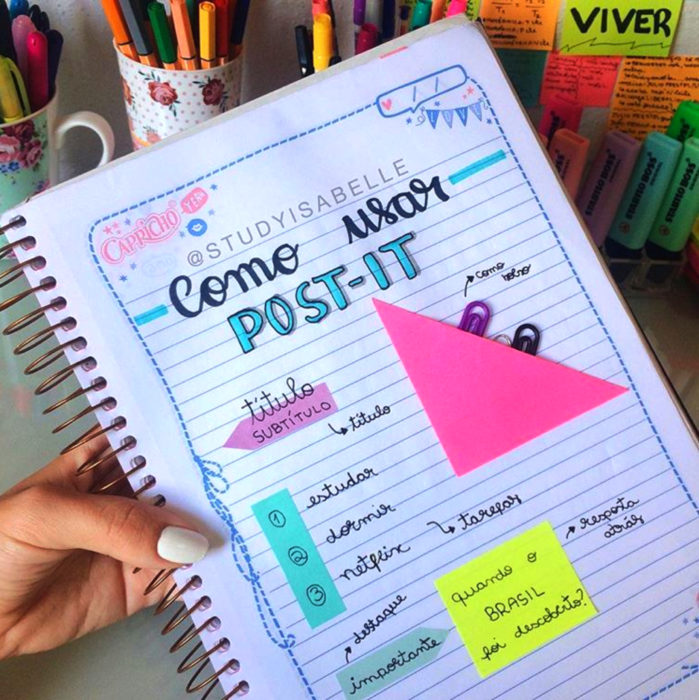 VIVER
STABILO BOSS
STABILO BOSS
CAPRICHO
YEAH
@STUDYISABELLE
como usar
POST-IT
como bolso
título
SUBTÍTULO
título
1 estudar
2 dormir
3 netflix
tarefas
resposta
atrás
quando o
BRASIL
foi descoberto?
destaque
importante